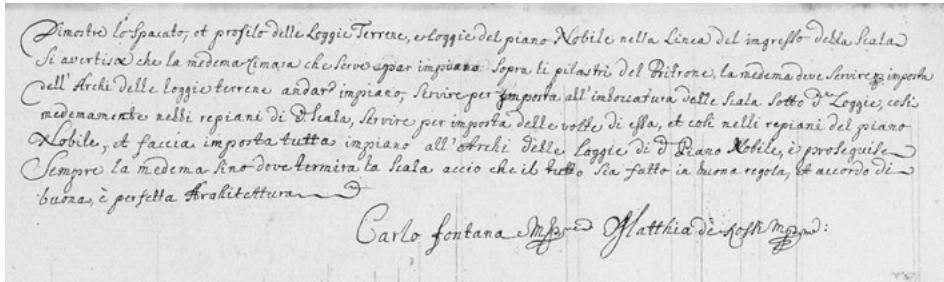 Dimostre lo Spacato, et profilo delle Loggie Terrene, e loggie del piano Nobile nella Linea del ingresso della Scala
Si avertisce che la medema Cimasa che serve per impiano Sopra li pilastri del, la medema deve servire p imposta
dell' Archi delle loggie terrene andar impiano, Servire per imposta all' imboccatura delle Scala Sotto de Loggie, cosi
medemamente nelli repiani di d. Scala, Servire per imposta delle volte di essa, et cosi nelli repiani del piano
Nobile, et faccia imposta tutta impiano all' Archi delle Loggie di d. Piano Nobile, è proseguise
Sempre la medema sino dove termina la Scala accio che il tutto Sia fatto in buona regola, et accordo di
buona, è perfetta Architettura
Carlo fontana Matthia de Rossi